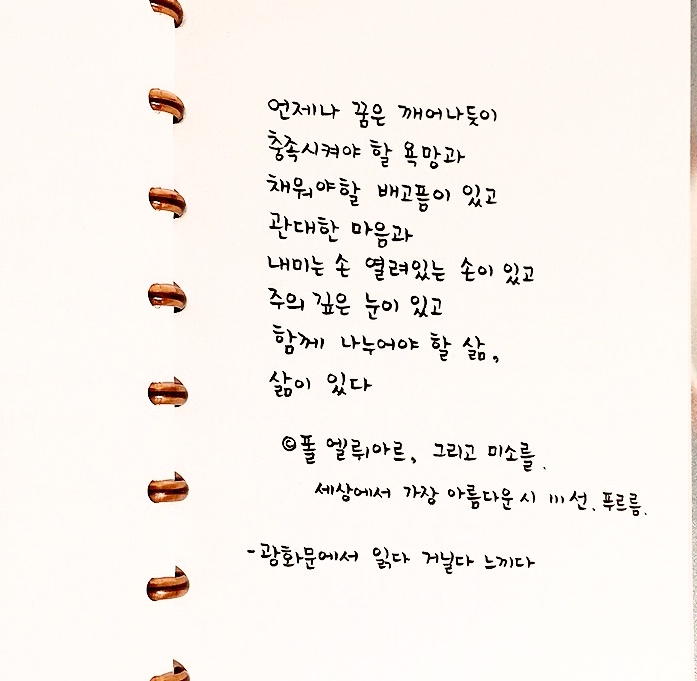 언제나 꿈은 깨어나듯이
충족시켜야 할 욕망과
채워야할 배고픔이 있고
관대한 마음과
내미는 손 열려있는 손이 있고
주의 깊은 눈이 있고
함께 나누어야 할 삶,
삶이 있다
©폴 엘뤼아르, 그리고 미소를.
세상에서 가장 아름다운 시 111선. 푸르름.
-광화문에서 읽다 거닐다 느끼다